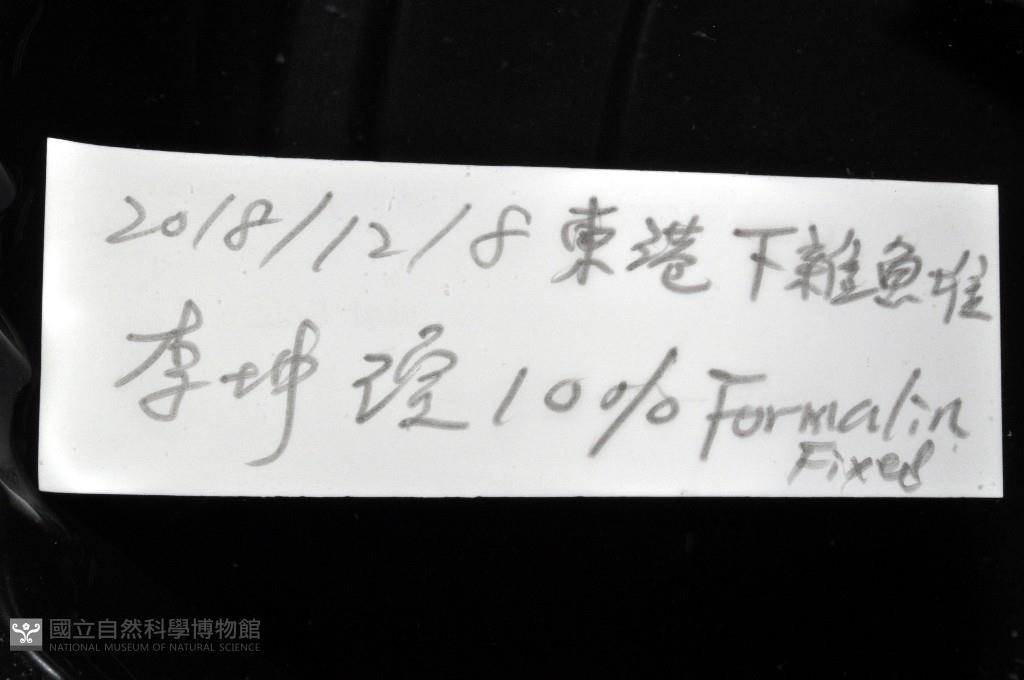 2018/12/8 東港 下雜魚堆
李坤瑄 10% Formalin
Fixed
國立自然科學博物館
NATIONAL MUSEUM OF NATURAL SCIENCE